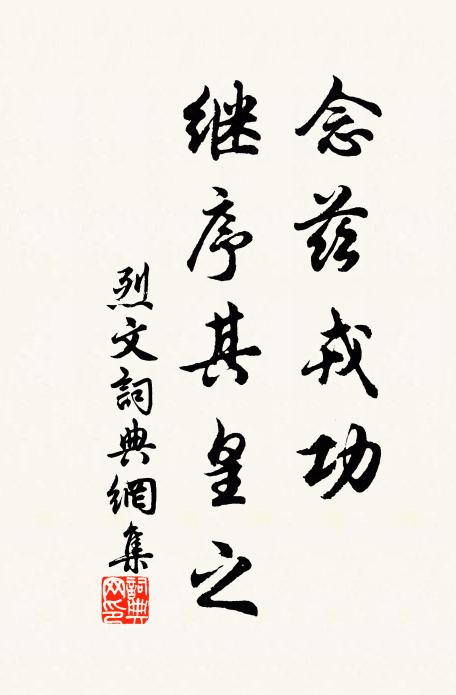 念兹戎功
继序其皇之
烈文詞典網集
詞典网印